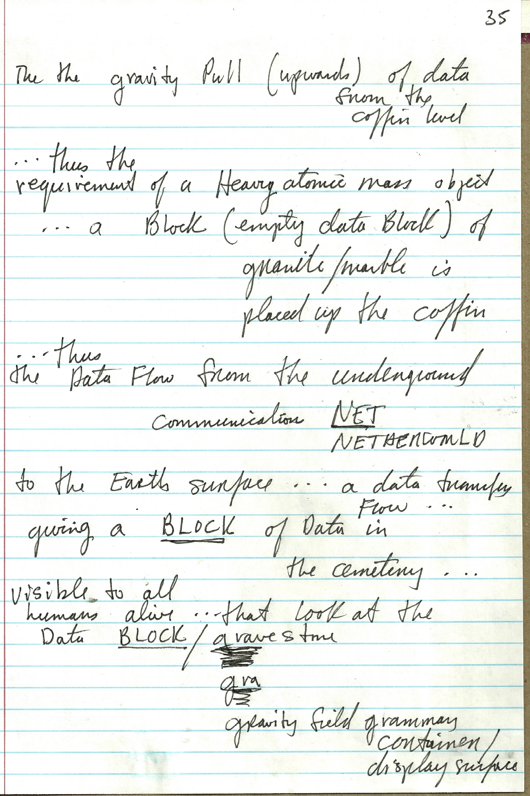 35
The the gravity Pull (upwards) of data
from the
coffin level
... thus the
requirement of a Heavy atomic mass object
... a Block (empty data Block) of
granite/marble is
placed up the coffin
... thus
the Data Flow from the underground
communication NET
NETHERWORLD
to the Earth surface ... a data transfer
Flow ...
giving a BLOCK of Data in
the cemetery ...
visible to all
humans alive ... that look at the
Data BLOCK / gravestone
gra
gravity field grammar
container/
display surface